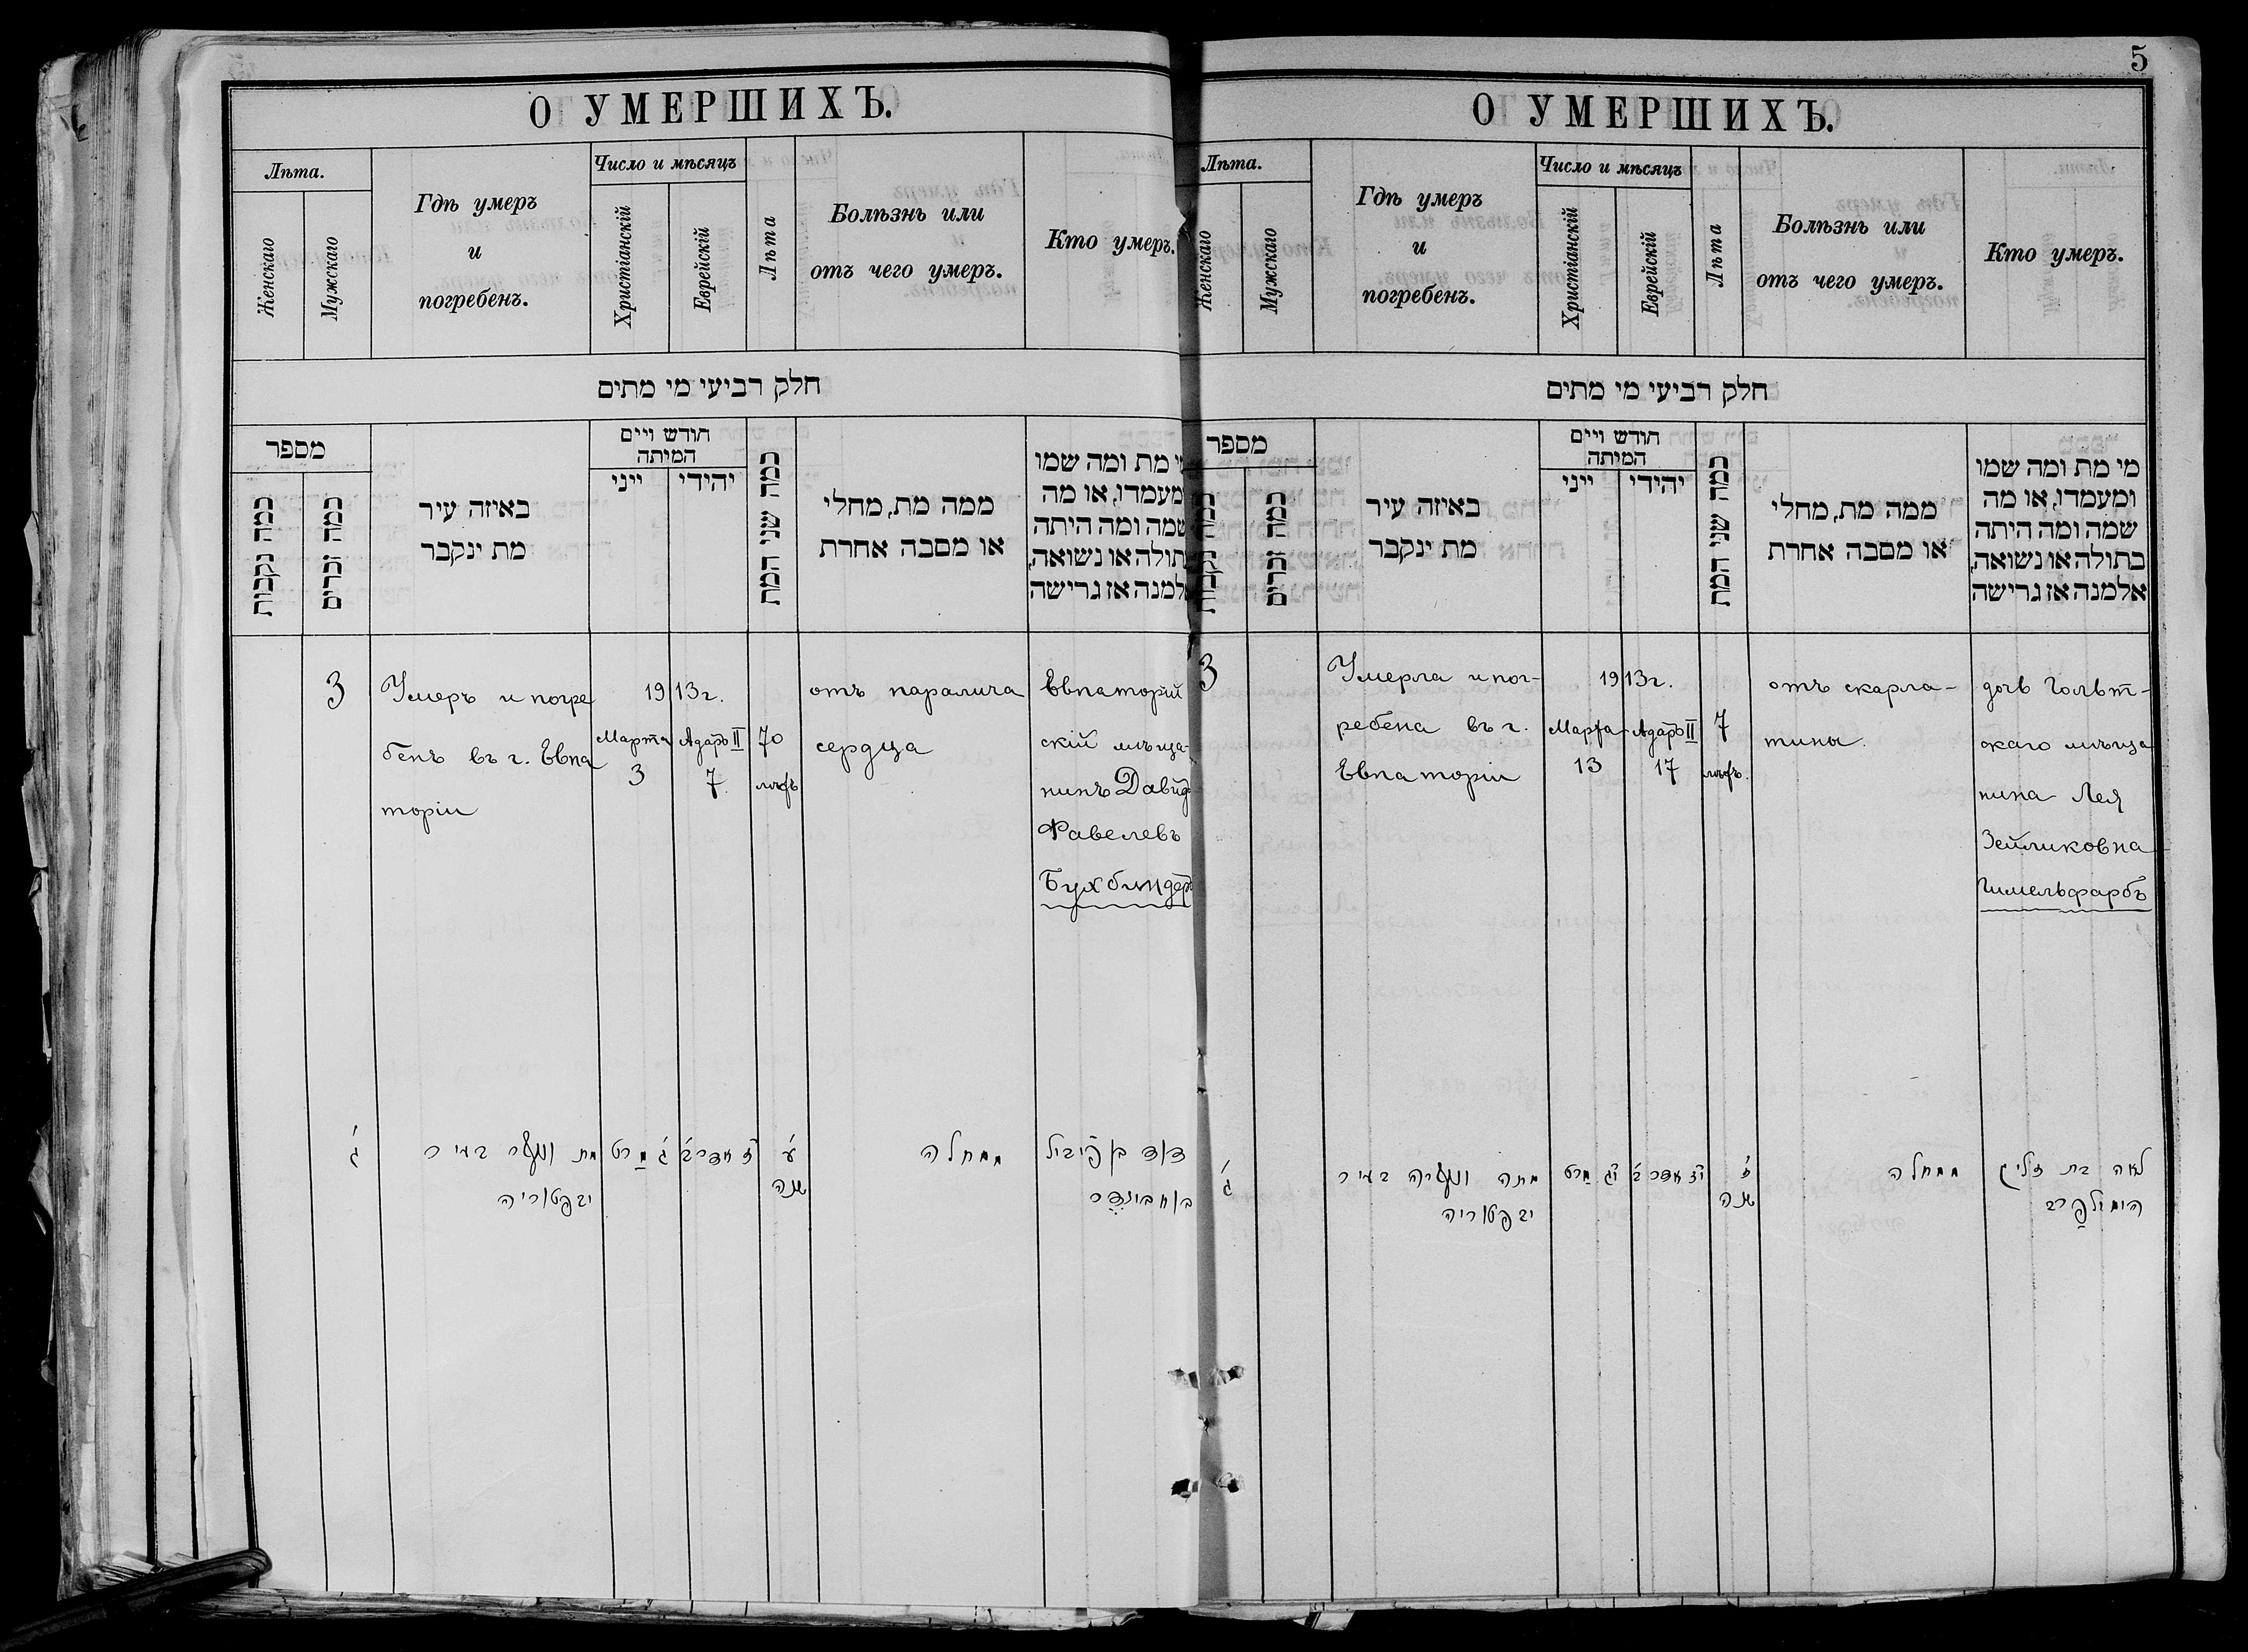 О УМЕРШИХЪ.
Лѣта.
Женскаго
Мужскаго
Гдѣ умеръ
и
погребенъ.
Число и мѣсяцъ
Христіанскій
Еврейскій
Лѣта
Болѣзнь или
отъ чего умеръ.
Кто умеръ.
חלק רביעי מי מתים
מספר
כמה נקבות
כמה זכרים
באיזה עיר
מת ינקבר
חודש ויים
המיתה
ייני
יהידי
כמה שני המת
ממה מת, מחלי
או מסבה אחרת
י מת ומה שמו
מעמדו, או מה
שמה ומה היתה
תולה או נשואה,
למנה אז גרישה
3
Умеръ и погре
бенъ въ г. Евпа
торіи
1913г.
Марта
3
Адаръ II
7
70
лѣтъ
отъ паралича
сердца
Евпаторій
скій мѣща-
нинъ Давидъ
Фавелевъ
Бухбиндеръ
ג׳
מת ונקבר בעיר
יבפטוריה
ג׳ מרט
ז׳ אדר ב׳
ע׳
שנה
ממחלה
דוד בן פייבול
בוחבינדר
5
О УМЕРШИХЪ.
Лѣта.
Женскаго
Мужскаго
Гдѣ умеръ
и
погребенъ.
Число и мѣсяцъ
Христіанскій
Еврейскій
Лѣта
Болѣзнь или
отъ чего умеръ.
Кто умеръ.
חלק רביעי מי מתים
מספר
כמה נקבות
כמה זכרים
באיזה עיר
מת ינקבר
חודש ויים
המיתה
ייני
יהידי
כמה שני המת
ממה מת, מחלי
או מסבה אחרת
מי מת ומה שמו
ומעמדו, או מה
שמה ומה היתה
בתולה או נשואה,
אלמנה אז גרישה
3
Умерла и пог-
ребена въ г.
Евпаторіи
1913г.
Марта
13
Адаръ II
17
7
лѣтъ.
отъ скарла-
тины.
дочь Гольт-
скаго мѣща
нина Лея
Зейликовна
Гимельфарбъ
ג׳
מתה ונקברה בעיר
יבפטוריה
יג מרט
יז אדר ב׳
ז׳
שנה
ממחלה
לאה בת זליג
הימילפרב